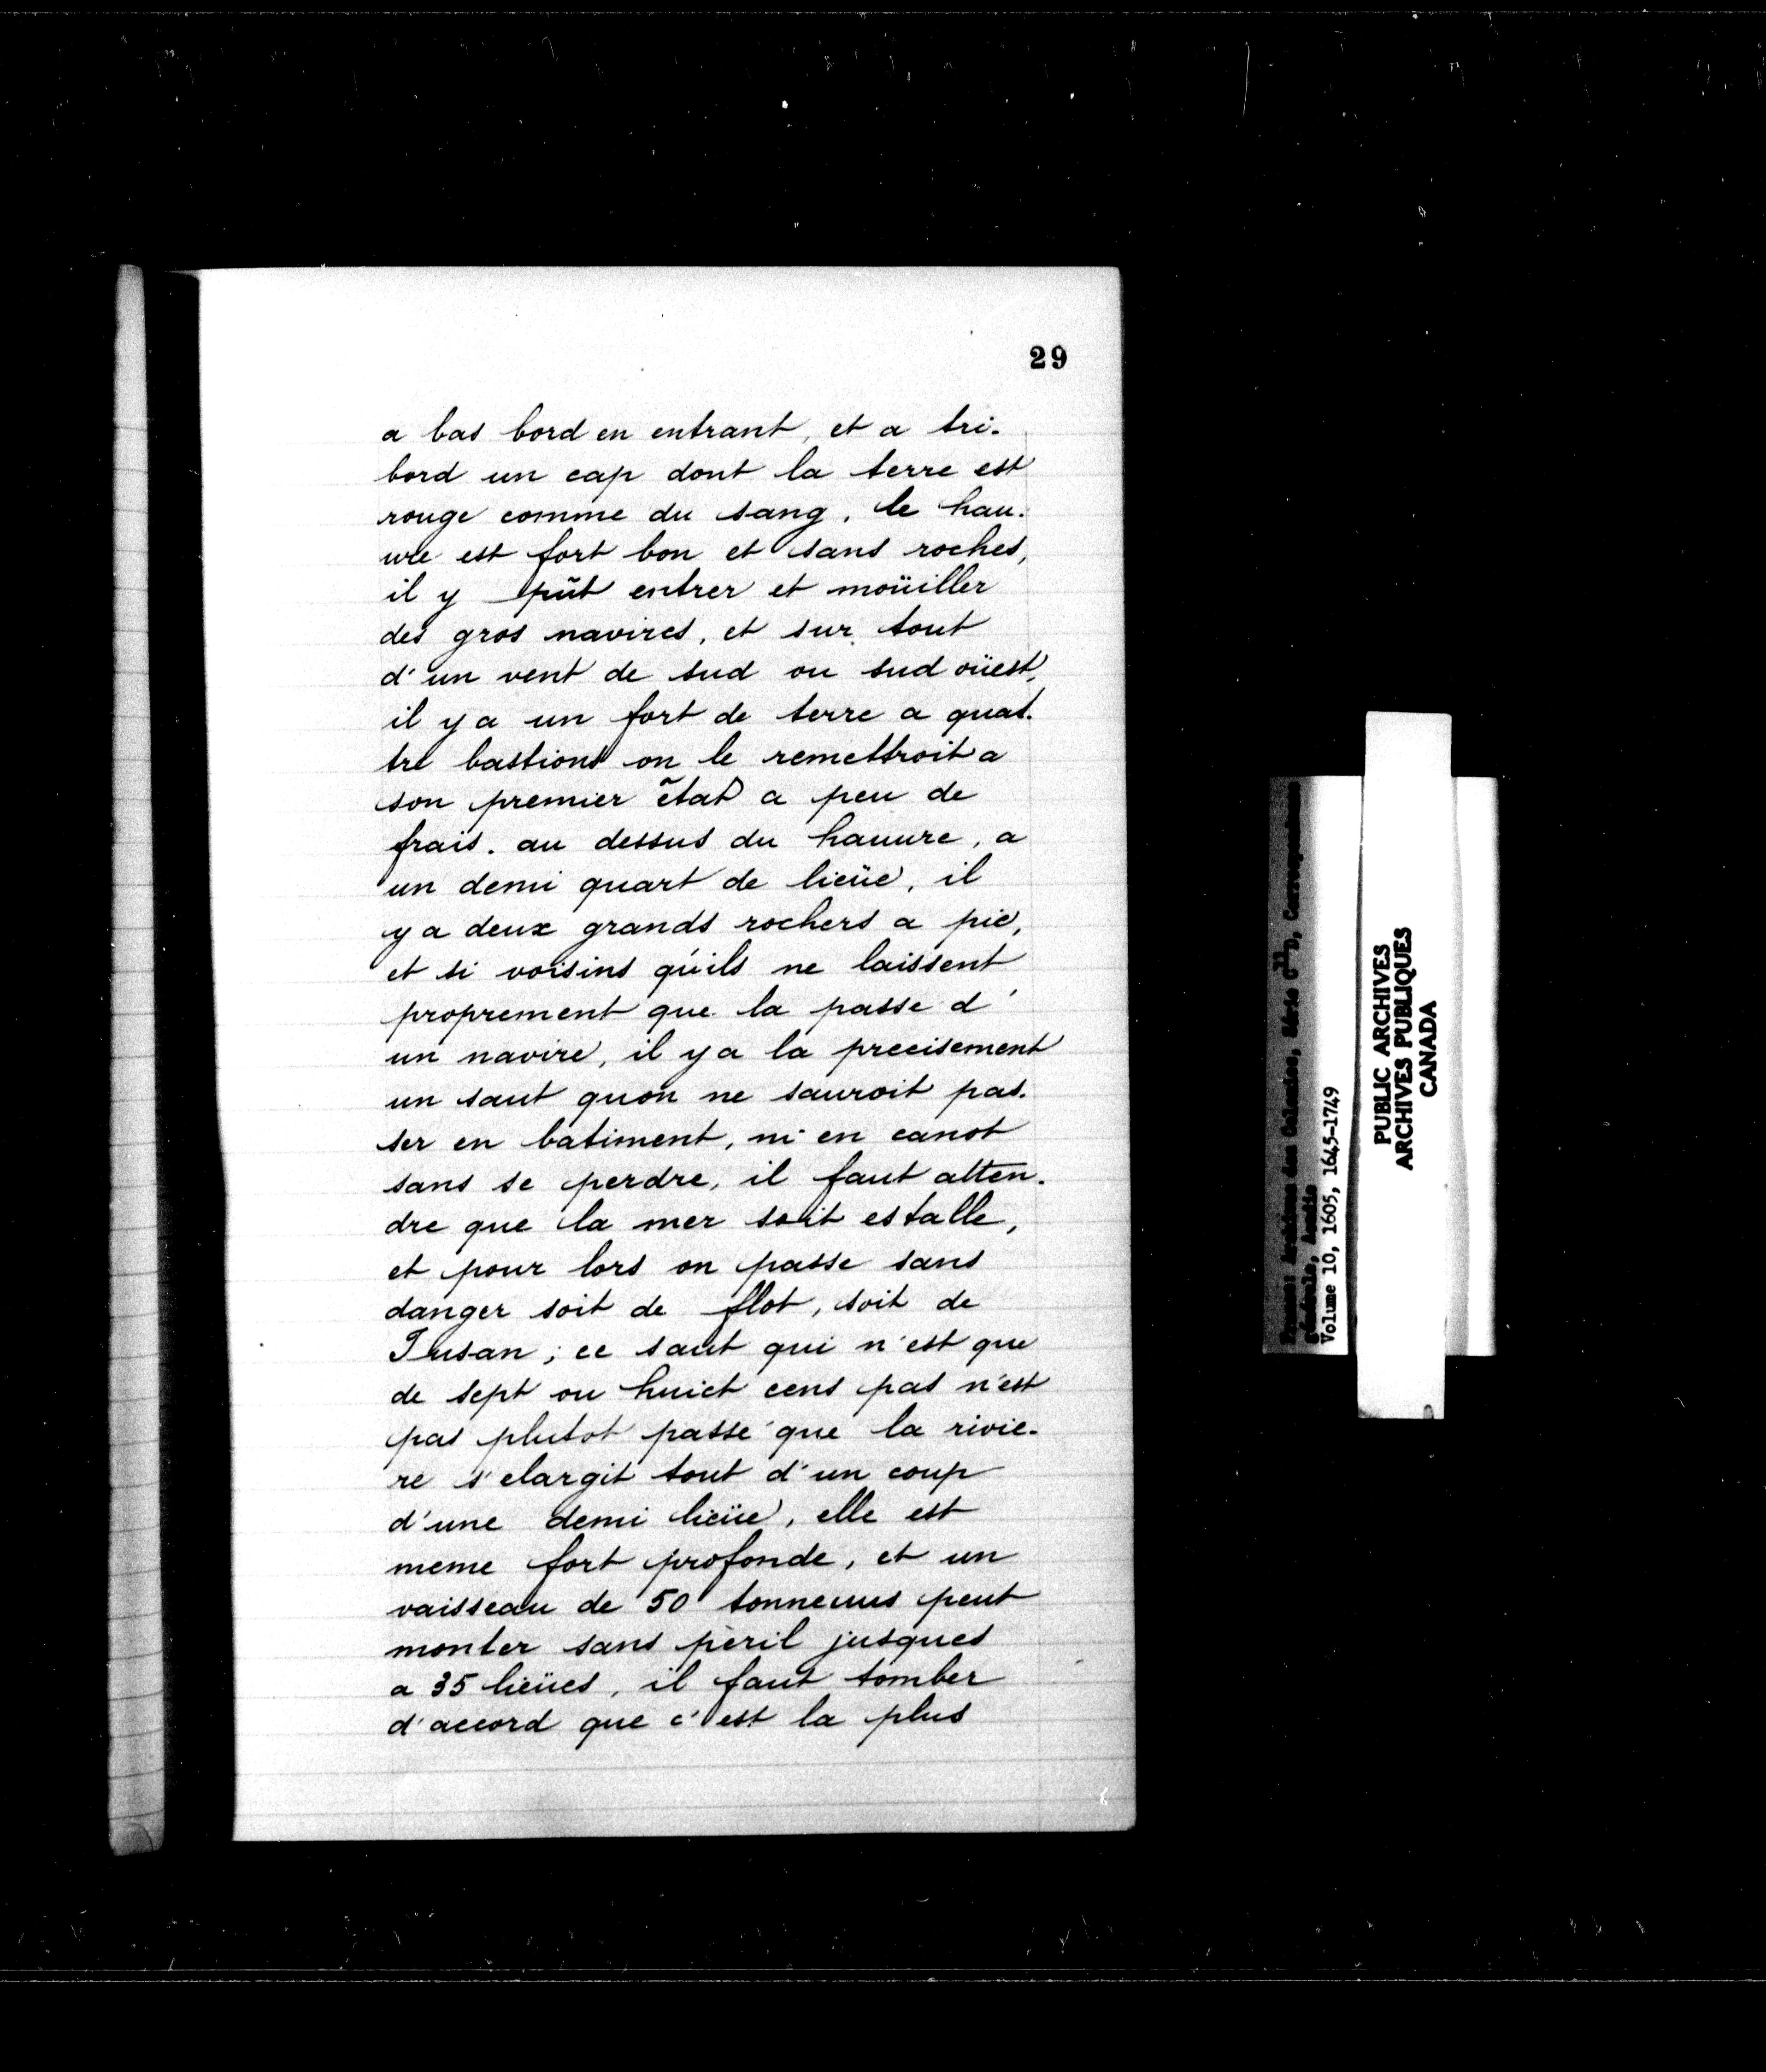 29
a bas bord en entrant, et a tri-
bord un cap dont la terre est
rouge comme du sang, le hau-
ure est fort bon et sans roches,
il y pût entrer et moüiller
des gros navires, et sur tout
d'un vent de sud ou sud oüest,
il y a un fort de terre a quat-
tre bastions on le remettroit a
son premier état a peu de
frais. au dessus du hauure, a
un demi quart de lieüe, il
y a deux grands rochers a pic,
et si voisins qu'ils ne laissent
proprement que la passe d'
un navire, il y a la precisement
un saut quon ne sauroit pas-
ser en batiment, ni en canot
sans se perdre, il faut atten-
dre que la mer soit estalle,
et pour lors on passe sans
danger soit de flot, soit de
Jusan; ce saut qui n'est que
de sept ou huict cens pas n'est
pas plutot passé que la rivie-
re s'elargit tout d'un coup
d'une demi lieüe, elle est
meme fort profonde, et un
vaisseau de 50 tonneuus peut
monter sans péril jusques
a 35 lieües, il faut tomber
d'accord que c'est la plus
France: Archives des Colonies, Série C11D, Correspondance
générale, Acadie
Volume 10, 1605, 1645-1749
PUBLIC ARCHIVES
ARCHIVES PUBLIQUES
CANADA